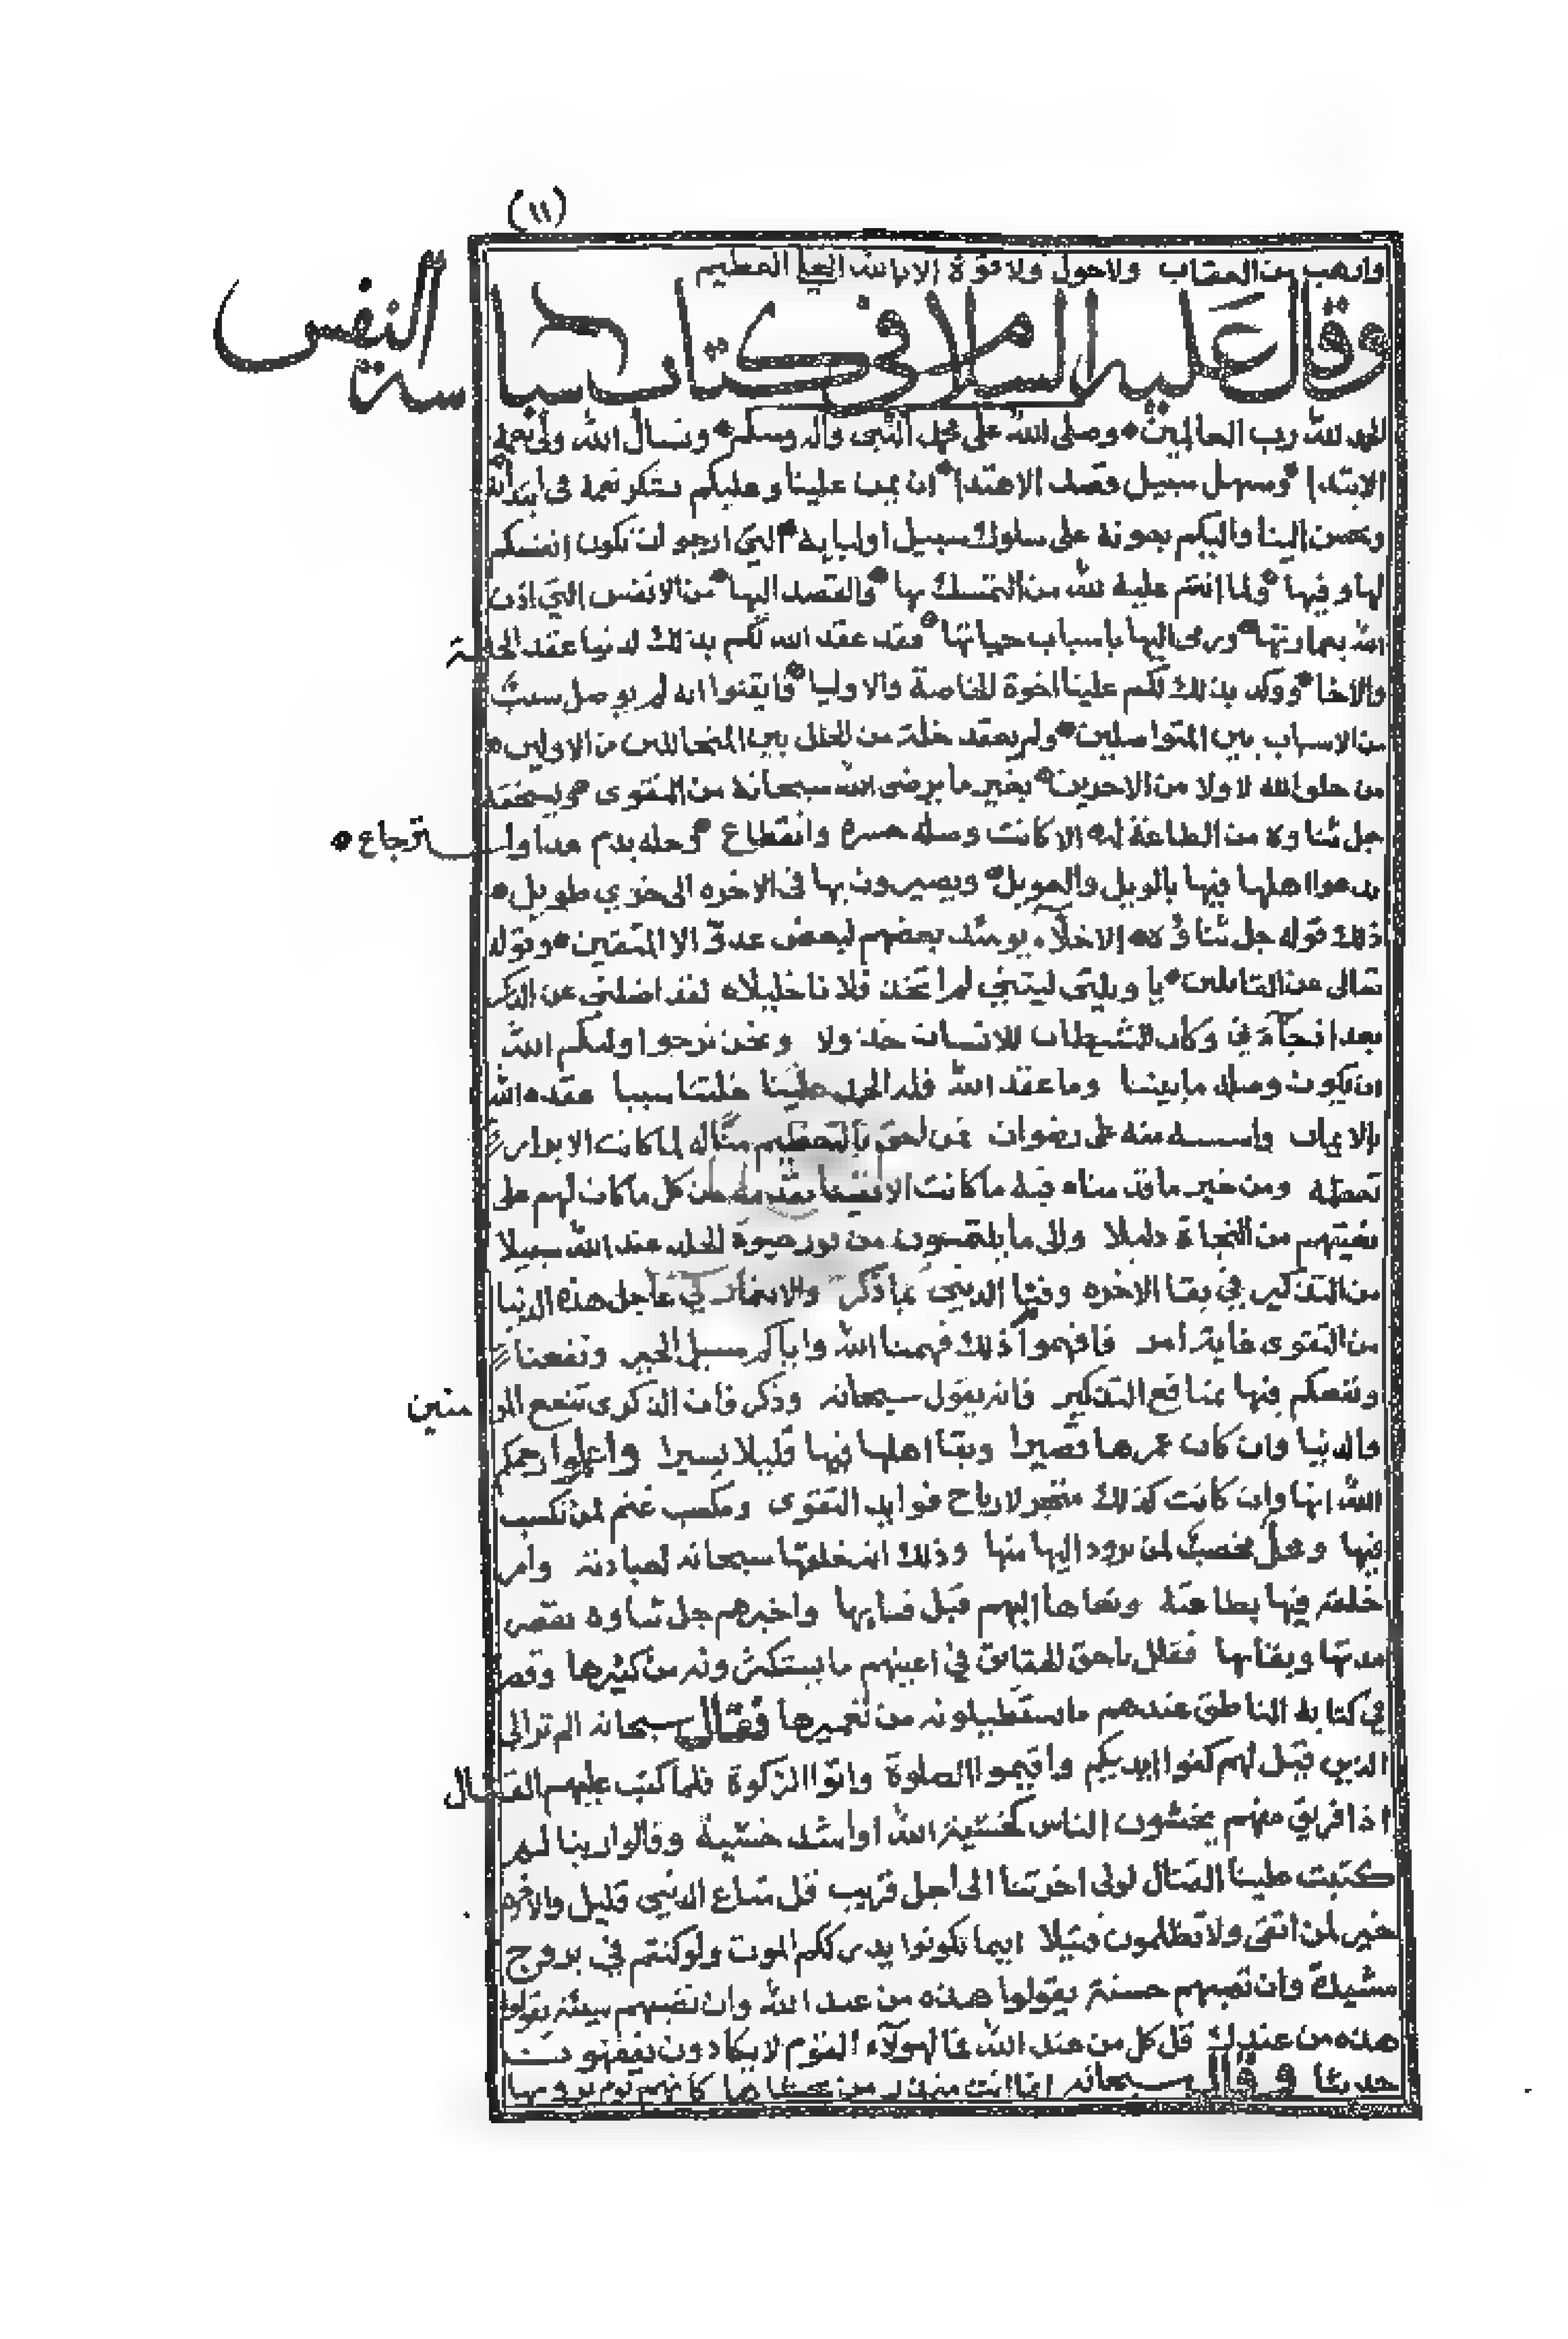 (١١)
وارهب من العقاب ولا حول ولا قوة الا بالله العلي العظيم
وقال عليه السلام في كتاب سياسة النفس
الحمد لله رب العالمين وصلى الله على محمد النبي واله وسلم ونسال الله ولي نعمة
الابتدا وسهل سبيل قصد الاهتدا ان يمن علينا وعليكم بشكر نعمة في ابتدائه
ونحسن الينا واليكم بعونه على سلوك سبيل اوليايه التي ارجو ان تكون انفسكم
لها وفيها ولما انتم عليه لله من التمسك بها والقصد اليها من الانفس التي اذن
الله بعمارتها ورمى اليها باسباب حياتها فقد عقد الله لكم بذلك لدينا عقد الخلة
والاخا ووكد بذلك لكم علينا اخوة الخاصة والاوليا فايقنوا انه لم يوصل سبب
من الاسباب بين المتواصلين ولم يعقد خلة من الخلل بين المتخاللين من الاولين
من خلق الله لا ولا من الاخرين بغير ما يرضى الله سبحانه من التقوى ويستحقه
جل ثناوه من الطاعة له الا كانت وصله حسرة وانقطاع وخله بدم هدا واسترجاع
يدعوا اهلها فيها بالويل والعويل ويصيرون بها في الاخره الى خزي طويل
ذلك قوله جل ثناؤه الاخلآء يومئذ بعضهم لبعض عدو الا المتقين وقوله
تعالى عن القايلين يا ويلتى ليتني لم اتخذ فلانا خليلاه لقد اضلني عن الذكر
بعد اذ جآءني وكان الشيطان للانسان خذولا ونحن نرجوا ولكم الله
ان يكون وصل ما بيننا وما عقد الله فله الحمد علينا خلتنا سببا عقده الله
بالايمان واسسه منه على رضوان فمن لحق بالتعظيم مثاله لما كانت الابرار
تعظه ومن خير ما قدمناه فيه ما كانت الانبيا تقدمه من كل ما كان لهم على
بغيتهم من النجاة دليلا والى ما يلتمسون من نور صوة الخلد عند الله سبيلا
من التذكير في بقا الاخره وفنا الدنيى بما ذكر والايمان في عاجل هذه الدنيا
من التقوى غاية امر فافهموا ذلك فهمنا الله واياكم سبيل الخير ونفعنا
ونفعكم فيها بمنافع التذكير فانه يقول سبحانه وذكر فان الذكرى تنفع المومنين
والدنيا وان كان عمرها قصيرا وبقا اهلها فيها قليلا يسيرا واعلموا رحمكم
الله انها وان كانت كذلك متجر لارباح فوايد التقوى ومكسب غنم لمن تكسب
فيها ومحل مخصب لمن تزود اليها منها وذلك انه خلقها سبحانه لعبادته وامر
خلقه فيها بطاعته ونعاها اليهم قبل فنايها واخبرهم جل ثناوه بقصر
مدتها وبقايها فقلل باحق الحقايق في اعينهم ما يستكثرونه من كثيرها وقصر
في كتابه الناطق عندهم ما يستطيلونه من تعميرها فقال سبحانه الم تر الى
الذين قيل لهم كفوا ايديكم واقيموا الصلوة واتوا الزكوة فلما كتب عليهم القتال
اذا فريق منهم يخشون الناس كخشية الله او اشد خشية وقالوا ربنا لم
كتبت علينا القتال لولى اخرتنا الى اجل قريب قل متاع الدنيى قليل والاخره
خير لمن اتقى ولا تظلمون فتيلا اينما تكونوا يدرككم الموت ولو كنتم في بروج
مشيدة وان تصبهم حسنة يقولوا هذه من عند الله وان تصبهم سيئة يقولوا
هذه من عندك قل كل من عند الله فما لهولآء القوم لا يكادون يفقهون
حديثا وقال سبحانه انما انت منذر من يخشاها كانهم يوم يرونها